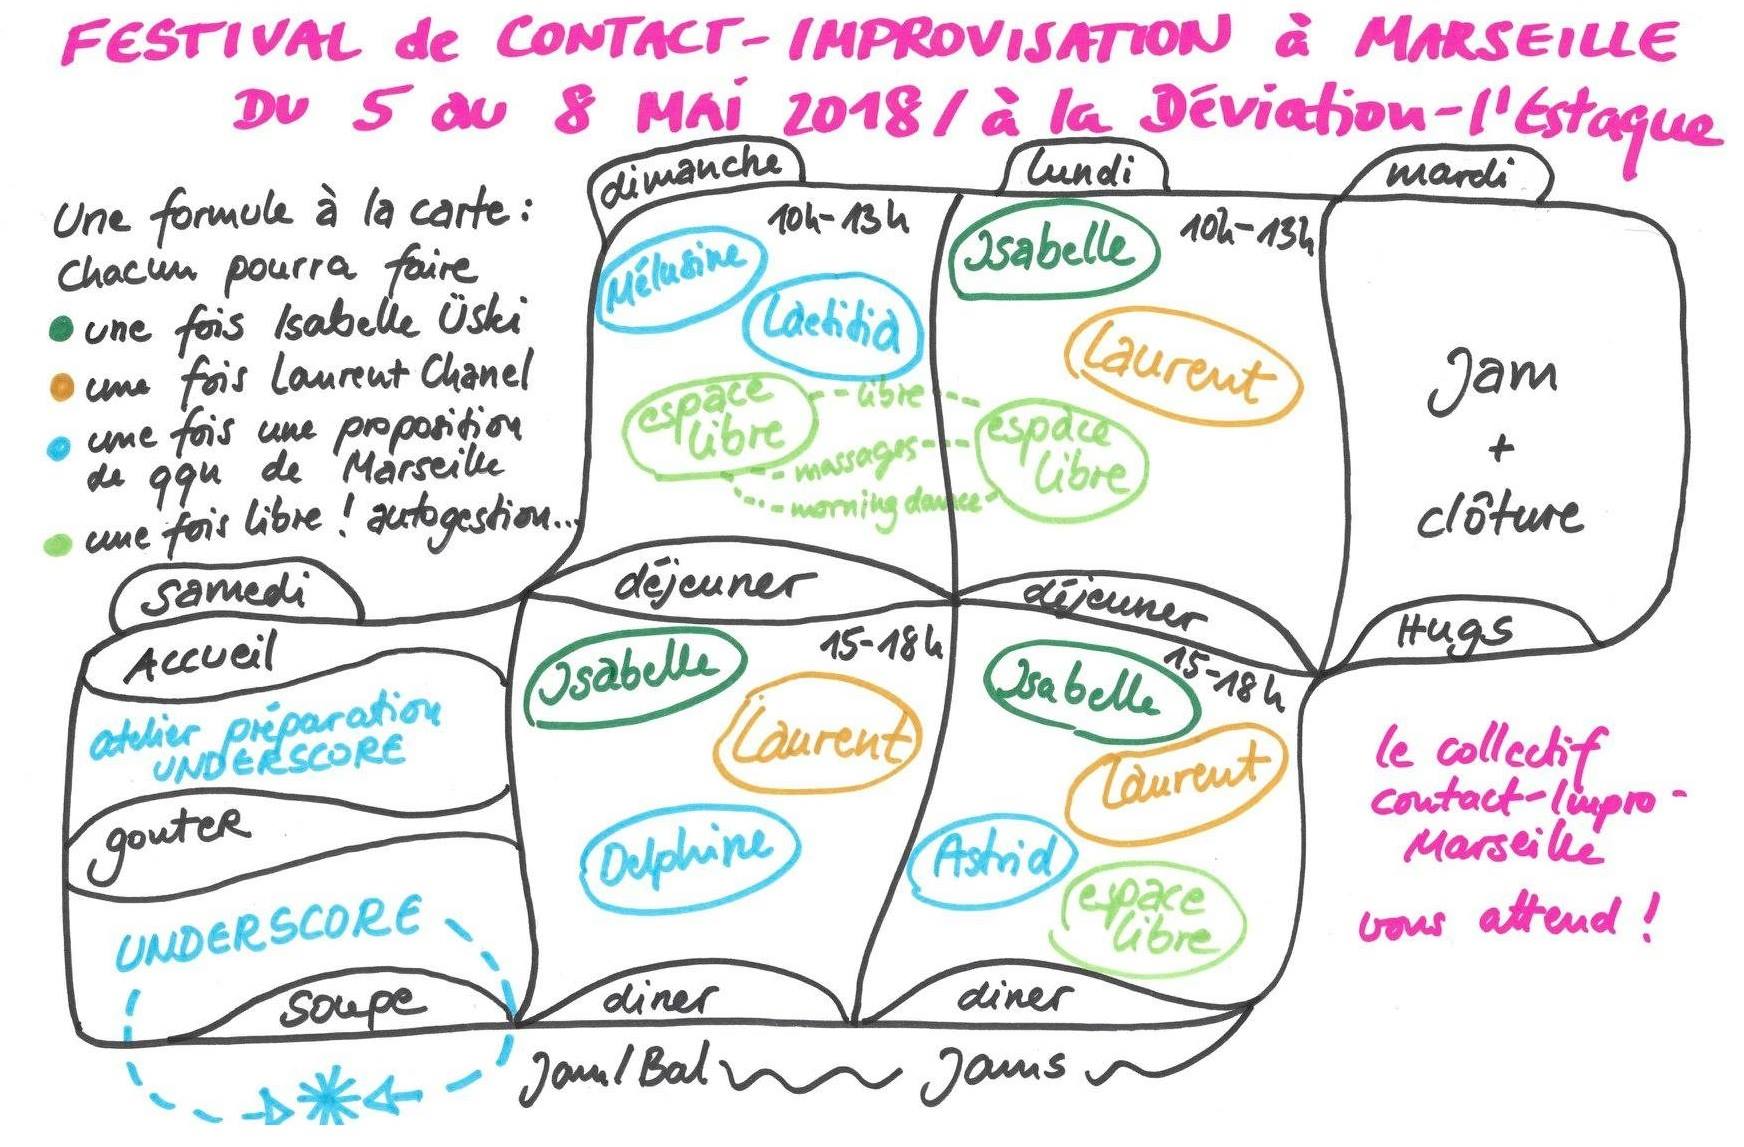 FESTIVAL de CONTACT-IMPROVISATION à MARSEILLE
DU 5 au 8 MAI 2018 / à la Déviation-l'Estaque
Une formule à la carte:
chacun pourra faire
une fois Isabelle Üski
une fois Laurent Chanel
une fois une proposition
de qqu de Marseille
une fois libre! autogestion...
samedi
Accueil
atelier préparation
UNDERSCORE
gouter
UNDERSCORE
soupe
dimanche
10h-13h
Mélusine
Laetitia
espace
libre
libre
massages
morning dance
déjeuner
15-18h
Isabelle
Laurent
Delphine
diner
Jam/Bal
lundi
10h-13h
Isabelle
Laurent
espace
libre
déjeuner
15-18h
Isabelle
Laurent
Astrid
espace
libre
diner
Jams
mardi
Jam
+
clôture
Hugs
le collectif
contact-Impro-
Marseille
vous attend!